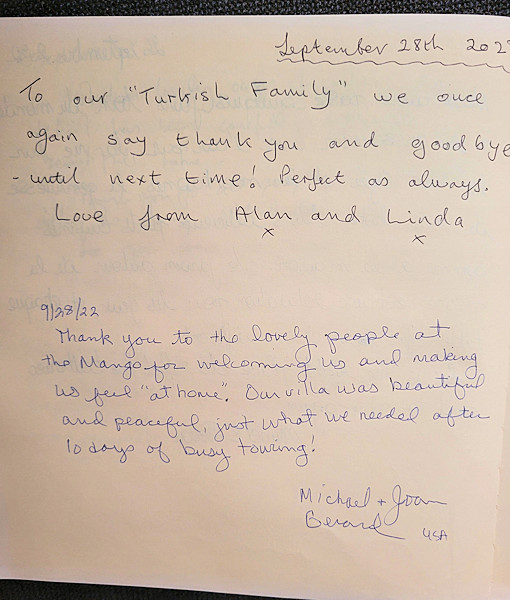 September 28th 202
To our "Turkish Family" we once
again say thank you and goodbye
- until next time! Perfect as always.
Love from Alan and Linda
x x
9/28/22
Thank you to the lovely people at
the Mango for welcoming us and making
us feel "at home". Our villa was beautiful
and peaceful, just what we needed after
10 days of busy touring!
Michael + Joan
Gerard USA